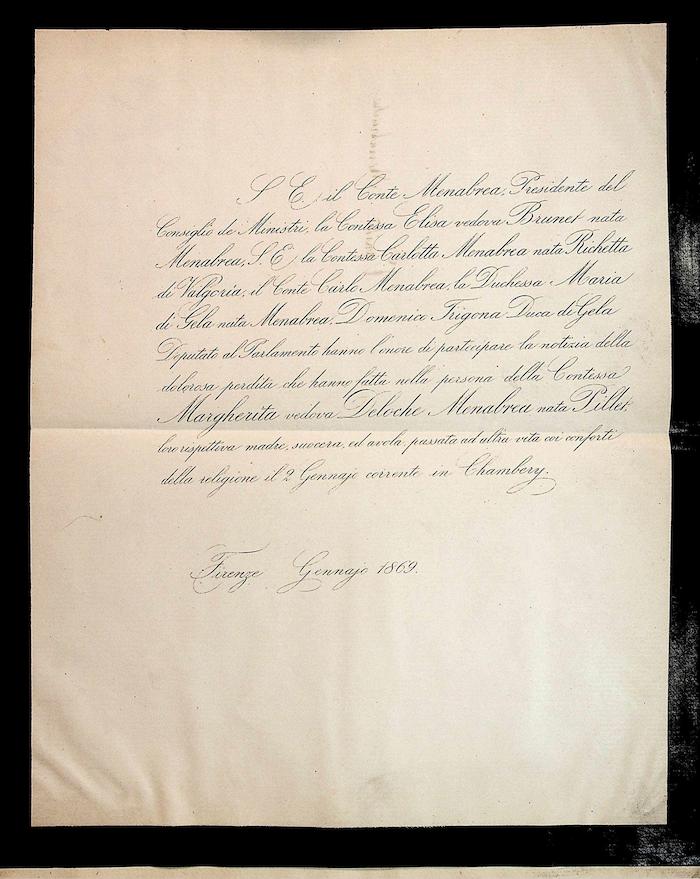 S. E. il Conte Menabrea, Presidente del
Consiglio de' Ministri, la Contessa Elisa vedova Brunet nata
Menabrea, S. E. la Contessa Carlotta Menabrea nata Richetta
di Valgoria, il Conte Carlo Menabrea, la Duchessa Maria
di Gela nata Menabrea, Domenico Trigona Duca di Gela
Deputato al Parlamento hanno l'onore di partecipare la notizia della
dolorosa perdita che hanno fatta nella persona della Contessa
Margherita vedova Deloche Menabrea nata Pillet,
loro rispittiva madre, suocera, ed avola, passata ad altra vita coi conforti
della religione il 2 Gennajo corrente in Chambery.
Firenze Gennajo 1869.